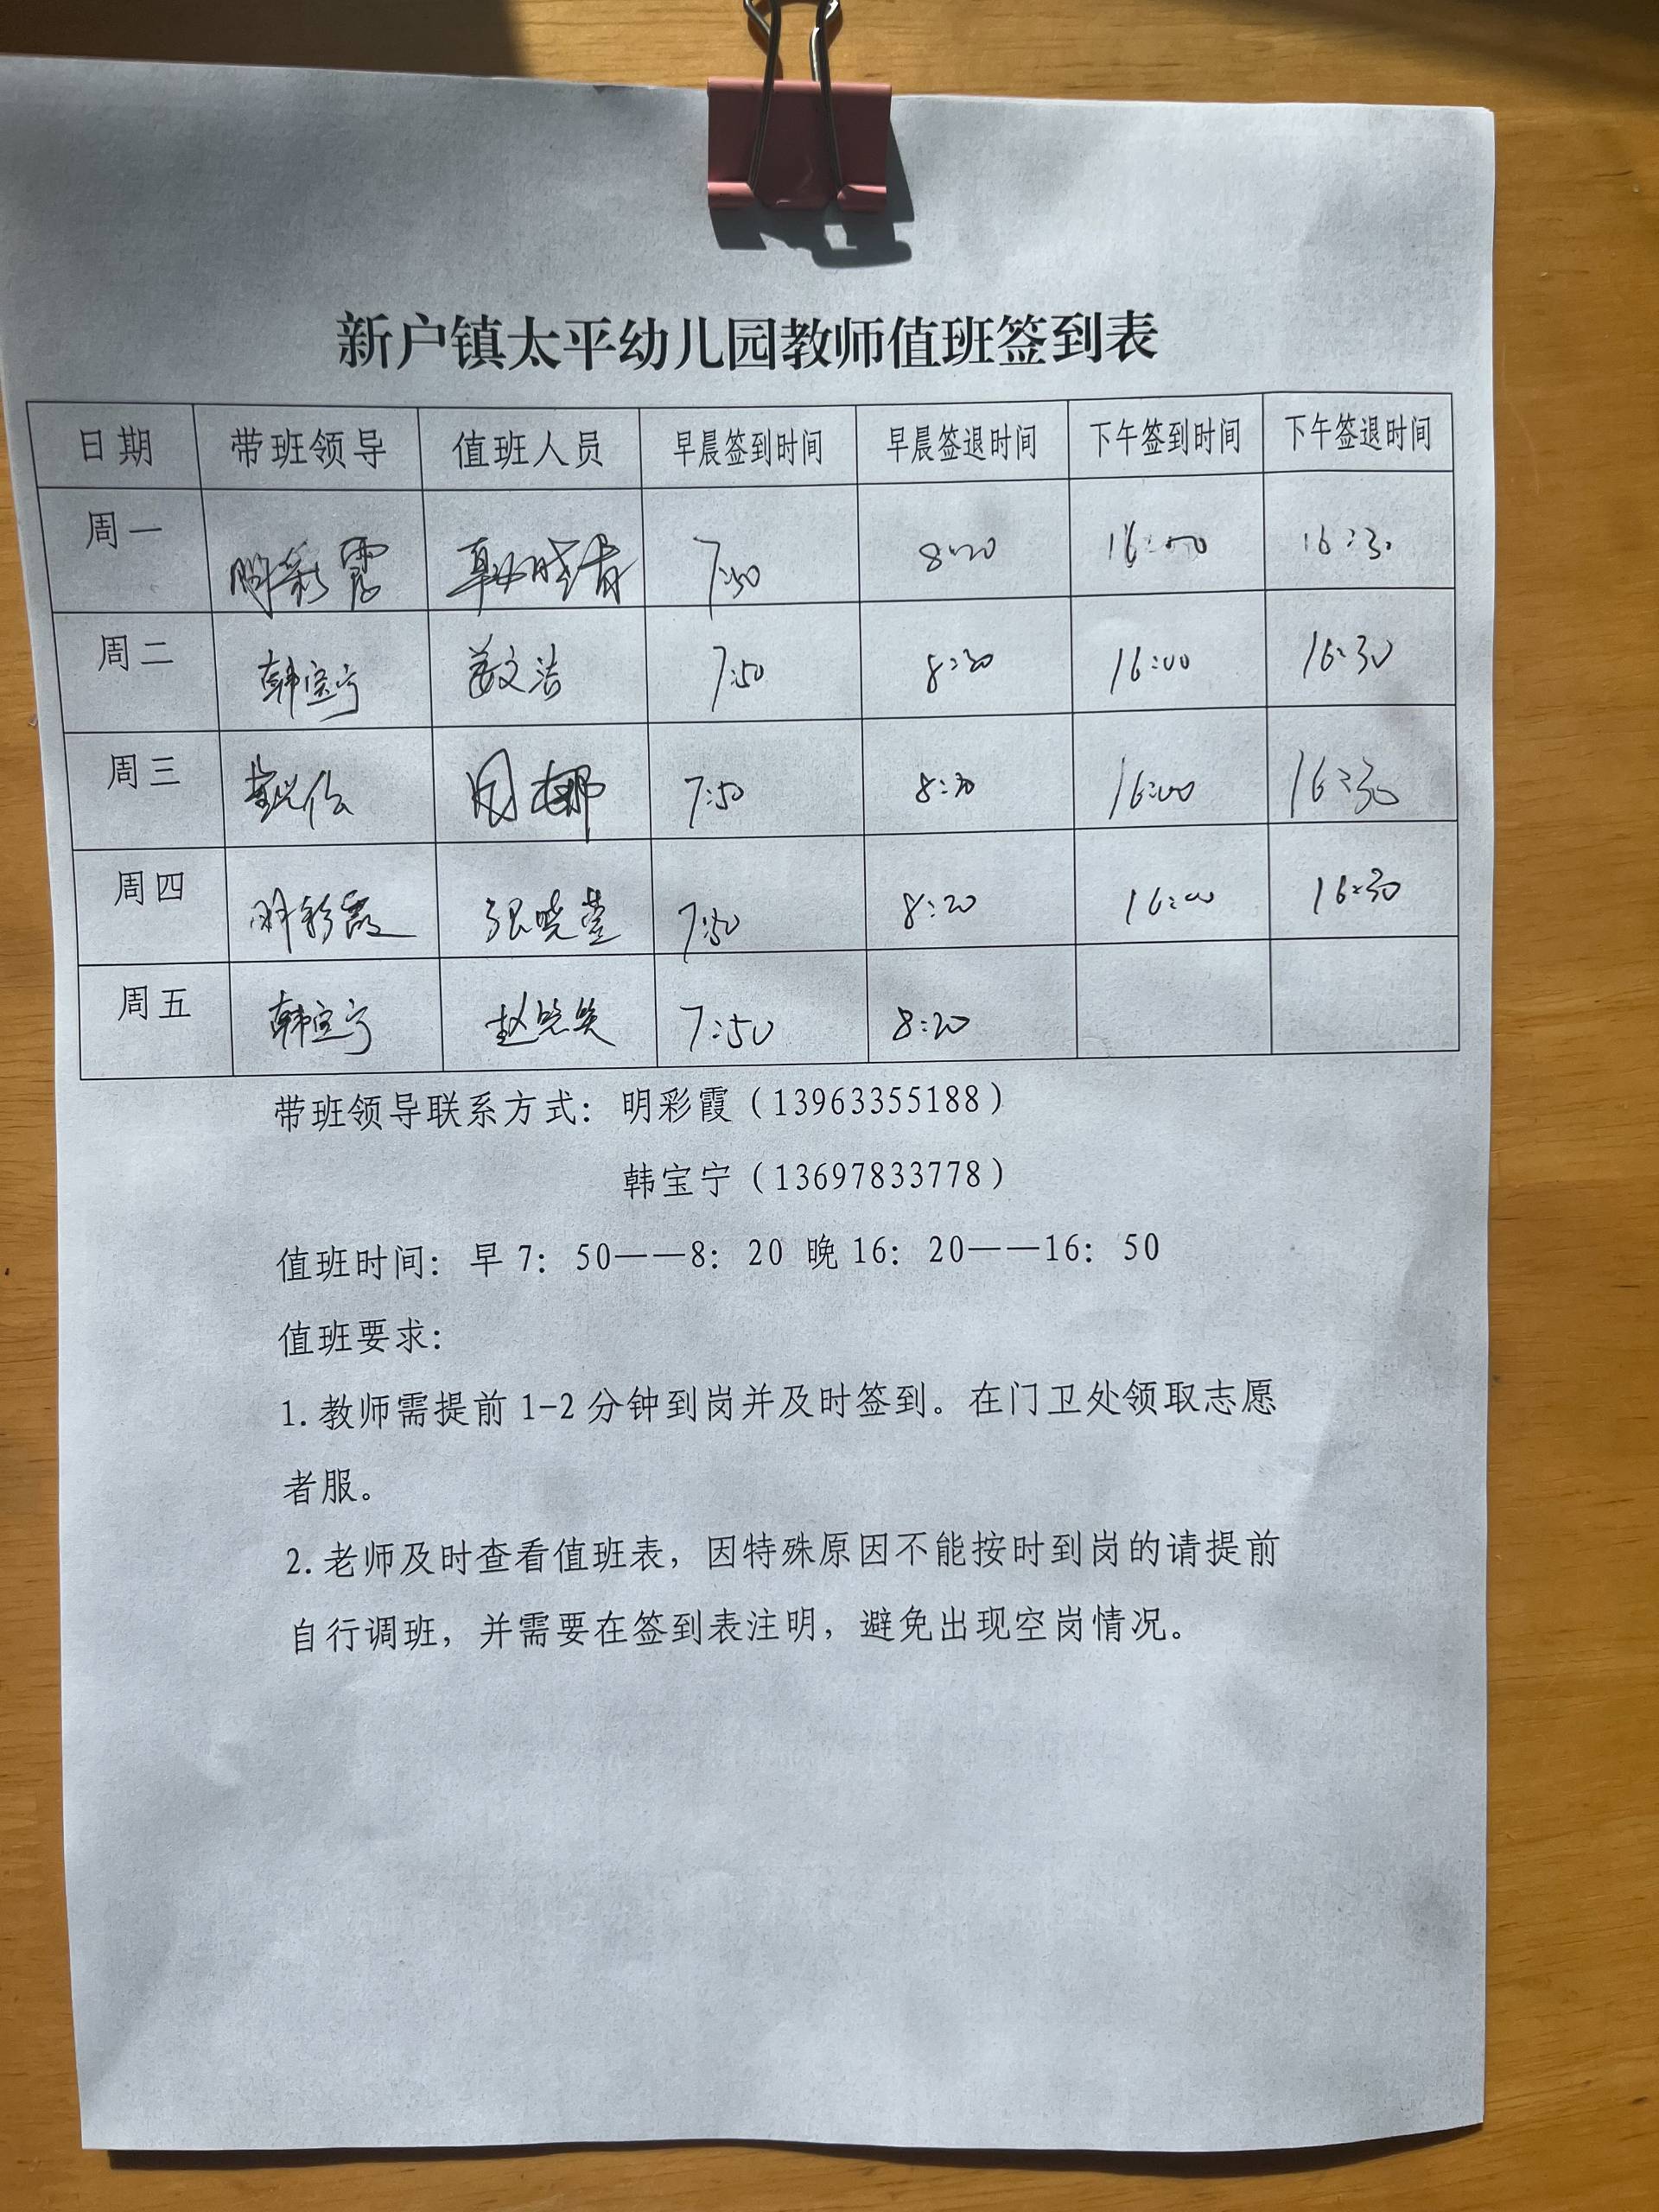 新户镇太平幼儿园教师值班签到表
日期 带班领导 值班人员 早晨签到时间 早晨签退时间 下午签到时间 下午签退时间
周一 明彩霞 7:50 8:20 16:00 16:30
周二 韩宝宁 姜文洁 7:50 8:20 16:00 16:30
周三 周娜 7:50 8:20 16:00 16:30
周四 明彩霞 张晓莹 7:50 8:20 16:00 16:30
周五 韩宝宁 7:50 8:20
带班领导联系方式：明彩霞（13963355188）
韩宝宁（13697833778）
值班时间：早7：50——8：20 晚16：20——16：50
值班要求：
1.教师需提前1-2分钟到岗并及时签到。在门卫处领取志愿
者服。
2.老师及时查看值班表，因特殊原因不能按时到岗的请提前
自行调班，并需要在签到表注明，避免出现空岗情况。